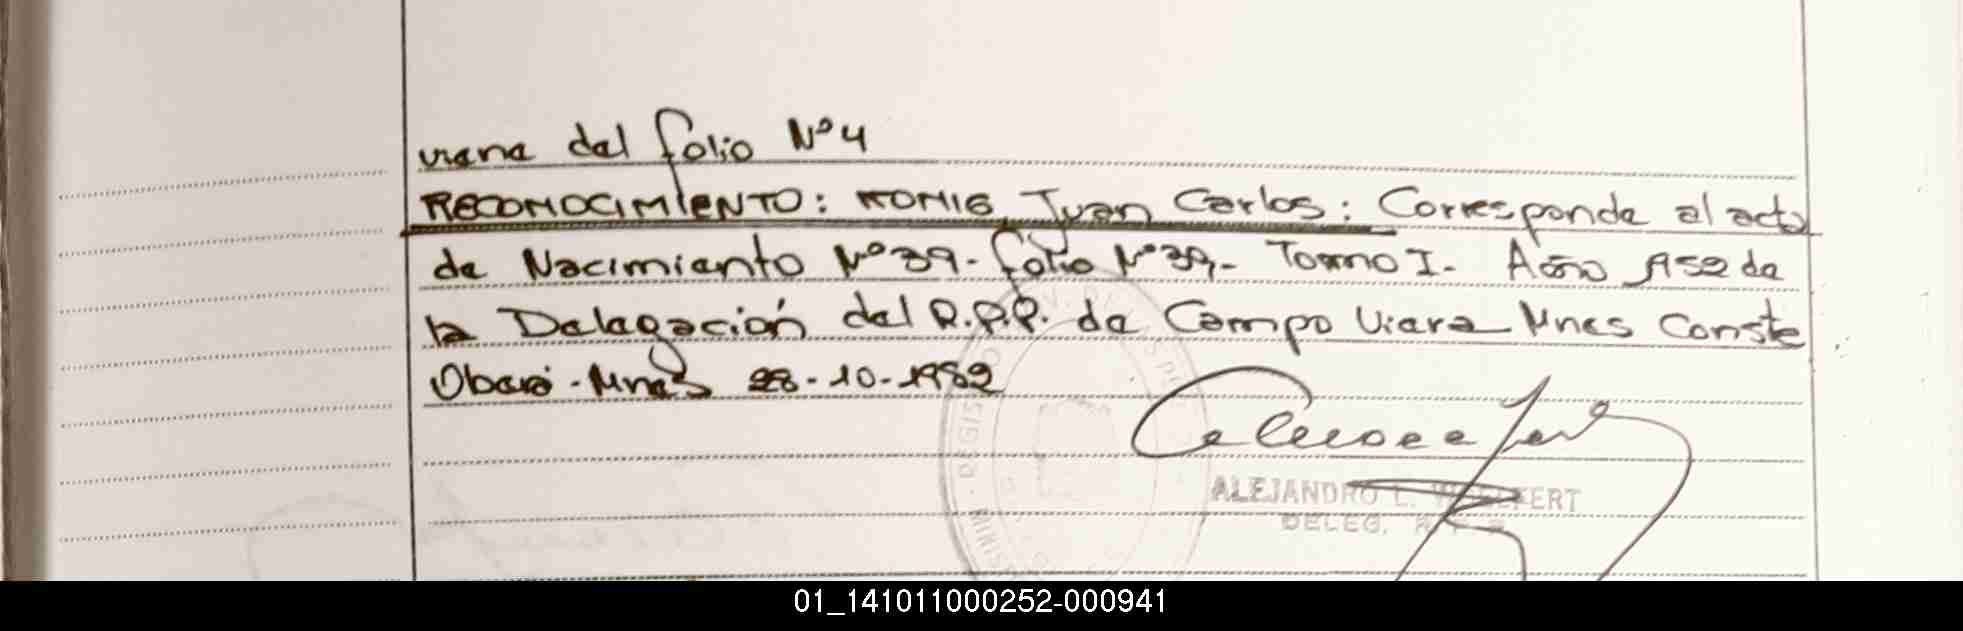 viene del folio Nº4
RECONOCIMIENTO: KONIG, Juan Carlos: Corresponde al acto
de Nacimiento Nº39- folio Nº39,- Tomo I- Año 1952 de
la Delegación del R.P.P. de Campo Viera Mnes Conste
Oberá-Mnes 28-10-1982
ALEJANDRO L. WOELFERT
DELEG. R P P
01_141011000252-000941